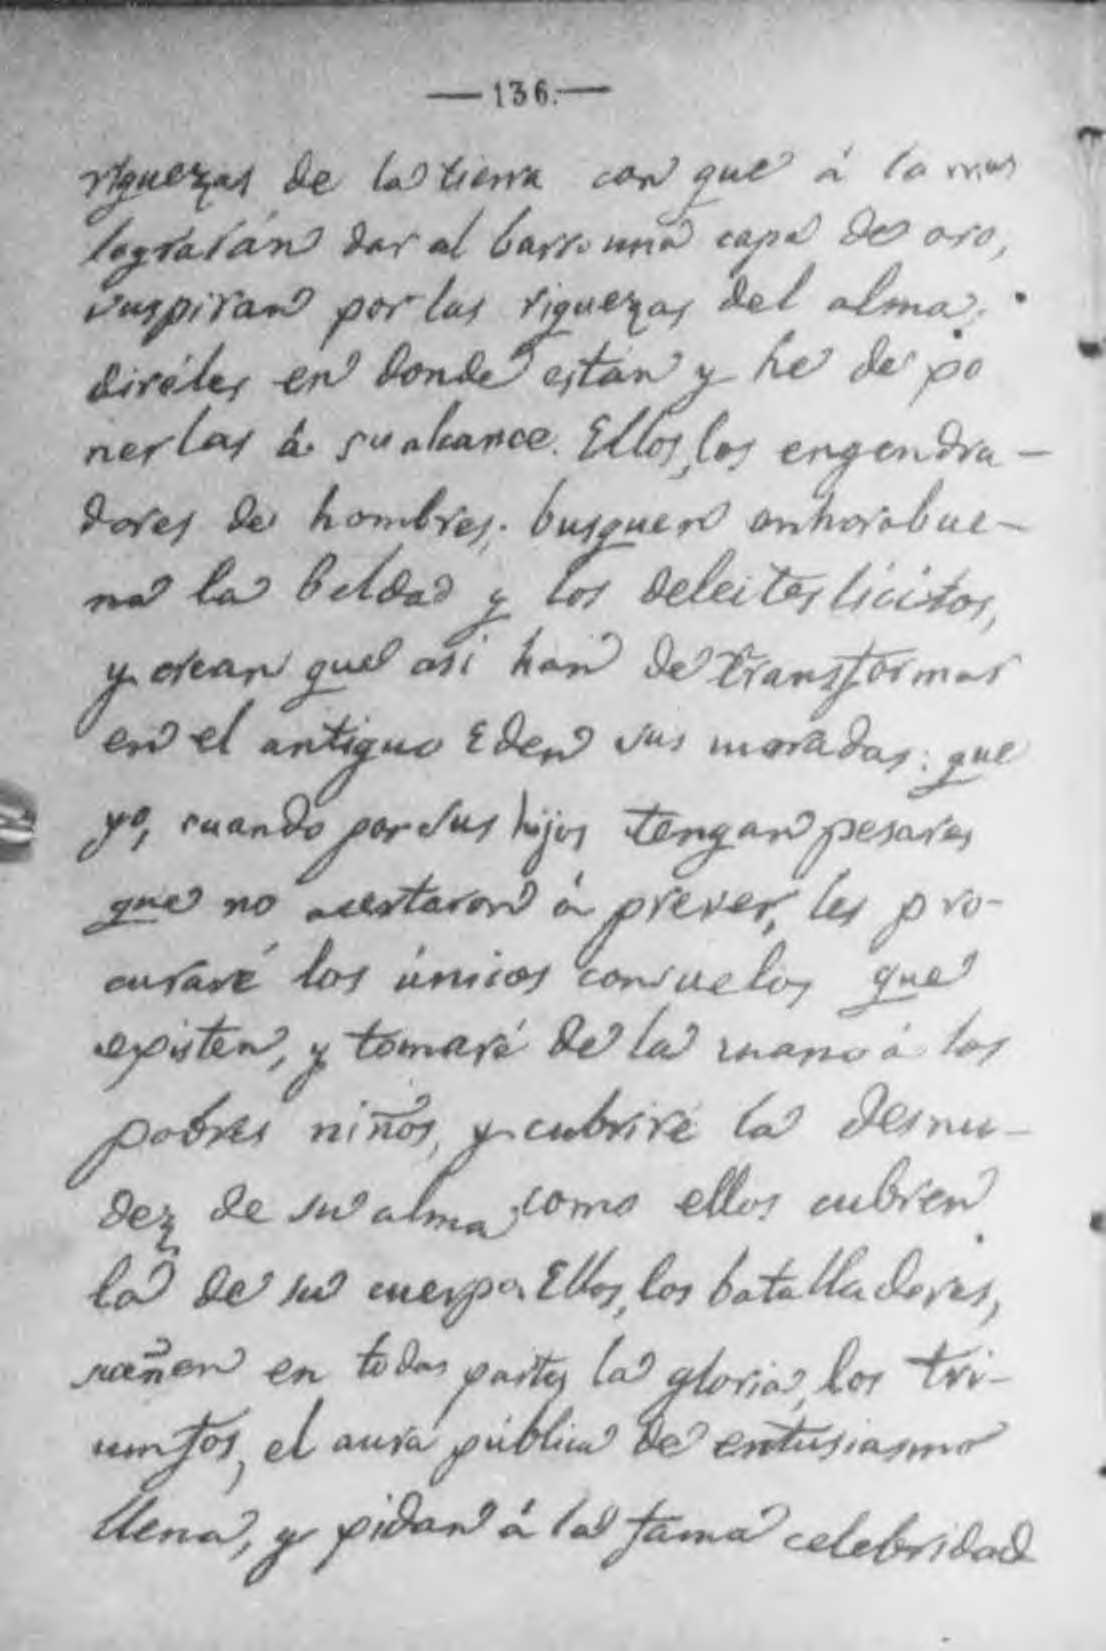 — 136. —
riquezas de la tierra con que á lo mas
lograrán dar al barro una capa de oro,
suspiran por las riquezas del alma:
diréles en donde están y he de po
nerlas á su alcance. Ellos, los engendra-
dores de hombres, busquen enhorabue-
na la beldad y los deleites lícitos,
y crean que asi han de transformar
en el antiguo Eden sus moradas: que
yo, cuando por sus hijos tengan pesares
que no acertaron á prever, les pro-
curaré los únicos consuelos que
existen, y tomaré de la mano á los
pobres niños, y cubriré la desnu-
dez de su alma como ellos cubren
la de su cuerpo. Ellos, los batalladores,
sueñen en todas partes la gloria, los tri-
unfos, el aura pública de entusiasmo
llena, y pidan á la fama celebridad